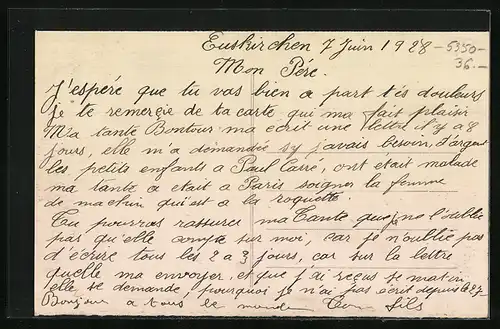 Euskirchen 7 Juin 1928 - 5350-
36.-
Mon Pére.
J'espére que tu vas bien a part tés douleurs
je te remerçie de ta carte qui ma fait plaisir
M'a tante Bontour ma écrit une lettre il y a 8
jours, elle m'a demandée sy j'avais besoin, d'argent
les petits enfants a Paul Carré, ont était malade
ma tante a était a Paris soigner la femme
de machin qu'est a la roquette
Tu pourras rassurer ma Tante, que je ne l'oublie
pas qu'elle compte sur moi, car je n'oublie pas
d'écrire tous les 2 a 3 jours, car sur la lettre
quelle ma envoyer, et que j'ai reçus se matin
elle se demande, pourquoi je n'ai pas écrit depuis le 27
Bonjour a tous le monde Ton fils